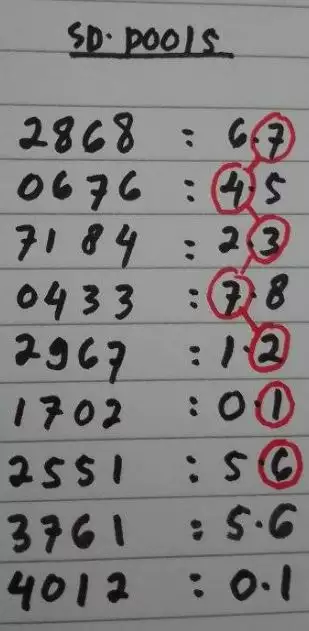 SD. POOLS
2868 : 6.7
0676 : 4.5
7184 : 2.3
0433 : 7.8
2967 : 1.2
1702 : 0.1
2551 : 5.6
3761 : 5.6
4012 : 0.1